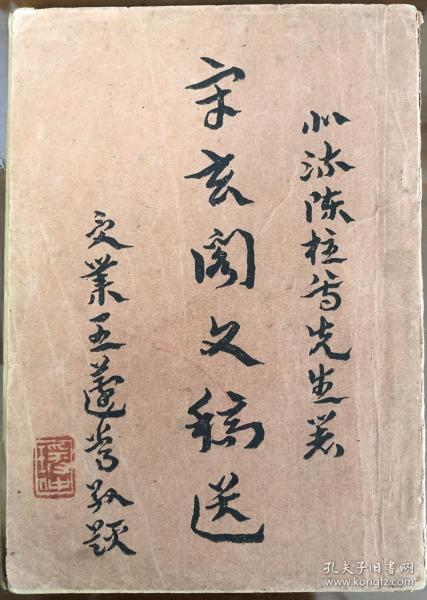 北流陳柱尊先生著
守玄閣文稿選
受業王蘧常敬題
瑗仲
孔夫子旧书网
www.kongfz.com